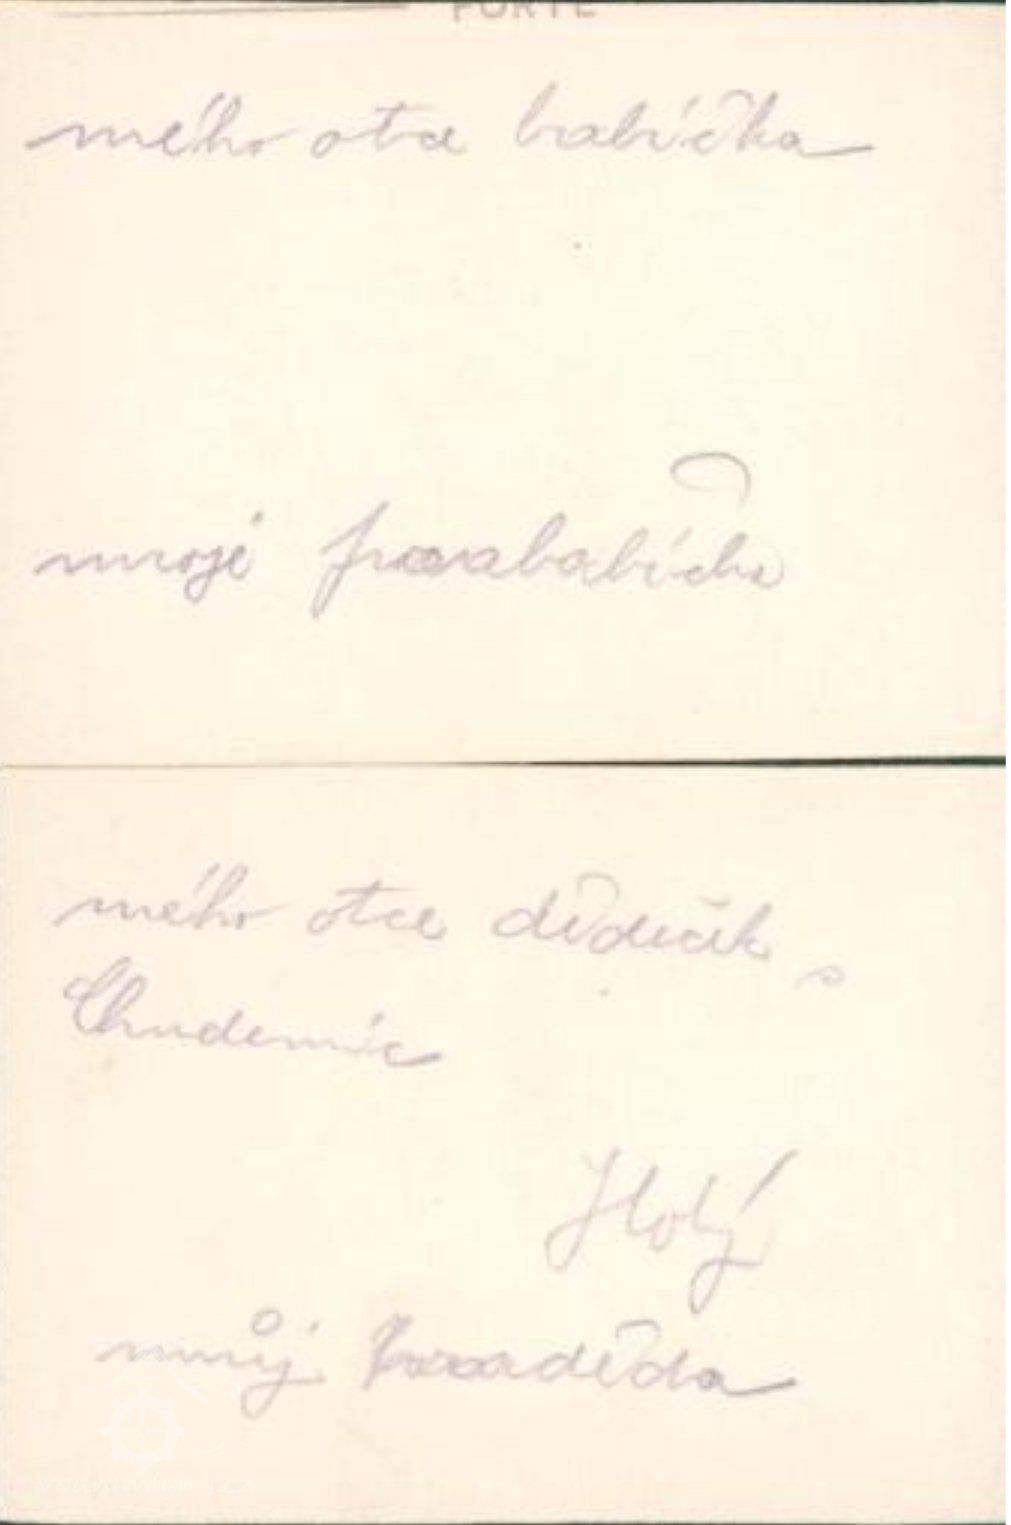 FORTE
mého otce babička
moje prababička
mého otce dědeček s
Chudenic
Holý
můj praděda